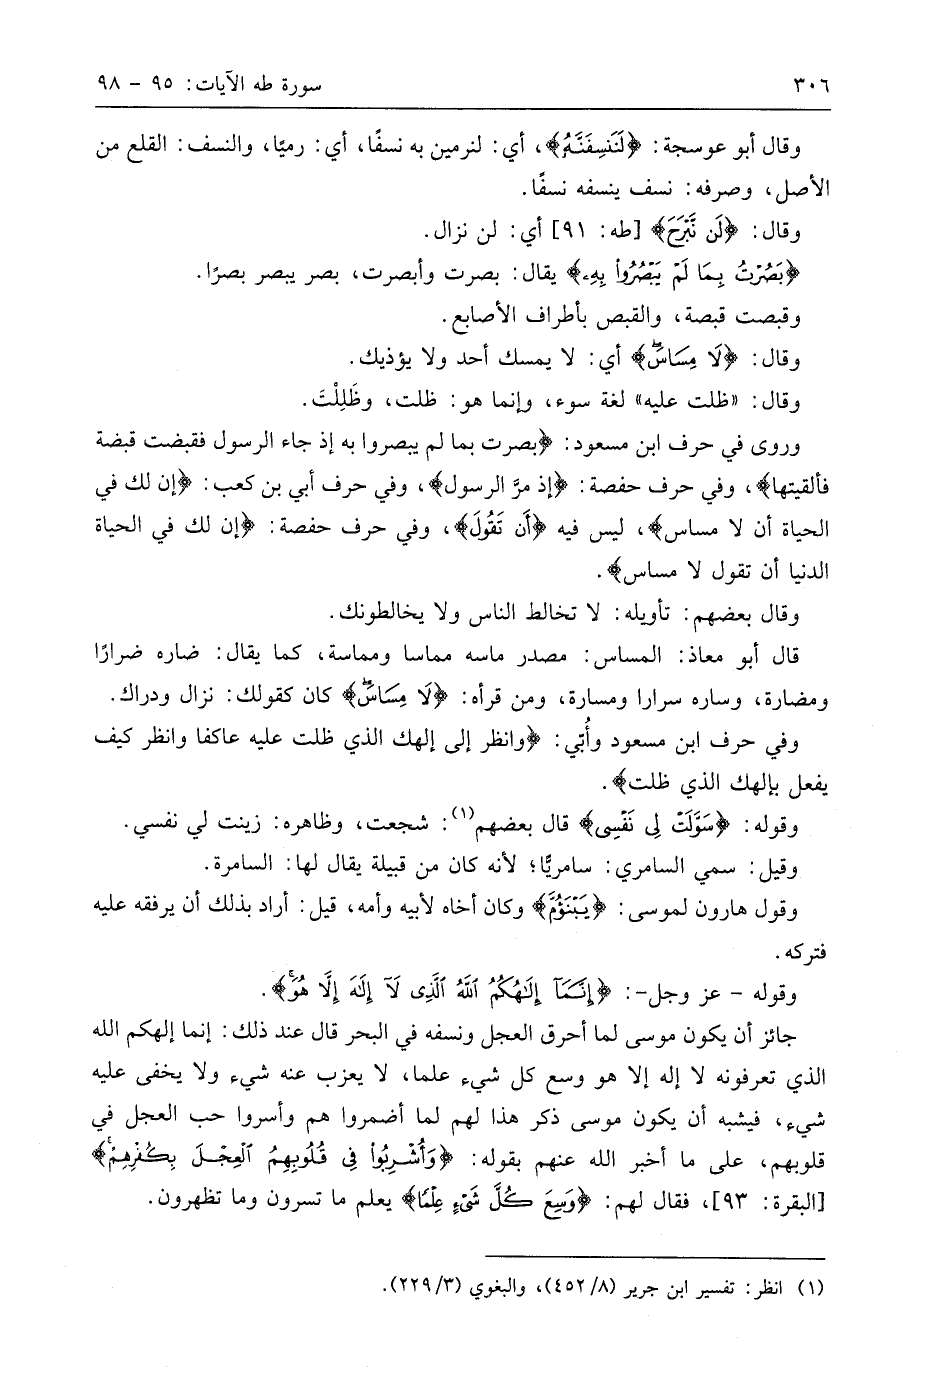 ٣٠٦ سورة طه الآيات: ٩٥ - ٩٨
وقال أبو عوسجة: ﴿لَنَنسِفَنَّهُ﴾، أي: لنرمين به نسفًا، أي: رميًا، والنسف: القلع من
الأصل، وصرفه: نسف ينسفه نسفًا.
وقال: ﴿لَن نَّبْرَحَ﴾ [طه: ٩١] أي: لن نزال.
﴿بَصُرْتُ بِمَا لَمْ يَبْصُرُوا۟ بِهِۦ﴾ يقال: بصرت وأبصرت، بصر يبصر بصرًا.
وقبصت قبصة، والقبص بأطراف الأصابع.
وقال: ﴿لَا مِسَاسَۖ﴾ أي: لا يمسك أحد ولا يؤذيك.
وقال: «ظلت عليه» لغة سوء، وإنما هو: ظلت، وظَلِلْتَ.
وروى في حرف ابن مسعود: ﴿بصرت بما لم يبصروا به إذ جاء الرسول فقبضت قبضة
فألقيتها﴾، وفي حرف حفصة: ﴿إذ مرَّ الرسول﴾، وفي حرف أبي بن كعب: ﴿إن لك في
الحياة أن لا مساس﴾، ليس فيه ﴿أَن تَقُولَ﴾، وفي حرف حفصة: ﴿إن لك في الحياة
الدنيا أن تقول لا مساس﴾.
وقال بعضهم: تأويله: لا تخالط الناس ولا يخالطونك.
قال أبو معاذ: المساس: مصدر ماسه مماسا ومماسة، كما يقال: ضاره ضرارًا
ومضارة، وساره سرارا ومسارة، ومن قرأه: ﴿لَا مِسَاسَۖ﴾ كان كقولك: نزال ودراك.
وفي حرف ابن مسعود وأُبّي: ﴿وانظر إلى إلهك الذي ظلت عليه عاكفا وانظر كيف
يفعل بإلهك الذي ظلت﴾.
وقوله: ﴿سَوَّلَتْ لِى نَفْسِى﴾ قال بعضهم(١): شجعت، وظاهره: زينت لي نفسي.
وقيل: سمي السامري: سامريًّا؛ لأنه كان من قبيلة يقال لها: السامرة.
وقول هارون لموسى: ﴿يَبْنَؤُمَّ﴾ وكان أخاه لأبيه وأمه، قيل: أراد بذلك أن يرفقه عليه
فتركه.
وقوله - عز وجل-: ﴿إِنَّمَآ إِلَٰهُكُمُ ٱللَّهُ ٱلَّذِى لَآ إِلَٰهَ إِلَّا هُوَۚ﴾.
جائز أن يكون موسى لما أحرق العجل ونسفه في البحر قال عند ذلك: إنما إلهكم الله
الذي تعرفونه لا إله إلا هو وسع كل شيء علما، لا يعزب عنه شيء ولا يخفى عليه
شيء، فيشبه أن يكون موسى ذكر هذا لهم لما أضمروا هم وأسروا حب العجل في
قلوبهم، على ما أخبر الله عنهم بقوله: ﴿وَأُشْرِبُوا۟ فِى قُلُوبِهِمُ ٱلْعِجْلَ بِكُفْرِهِمْۚ﴾
[البقرة: ٩٣]، فقال لهم: ﴿وَسِعَ كُلَّ شَىْءٍ عِلْمًا﴾ يعلم ما تسرون وما تظهرون.
(١) انظر: تفسير ابن جرير (٤٥٢/٨)، والبغوي (٢٢٩/٣).